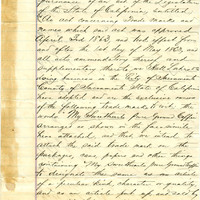 pursuance of an act of the Legislature
of the State of California entitled
"An act concerning Trade marks and
names" which said act was approved
April 3rd 1863, and took effect from
and after the 1st day of May 1863, and
all acts amendatory thereof and
supplementary thereto
doing business in the City of Sacramento
County of Sacramento State of California
have adopted and are the exclusive owners
of the following trade mark to wit: the
words "My Sweethearts pure Java Coffee"
arranged as shown on the facsimile
hereto attached, and that we intend to
attach the said trade mark on the
packages, and papers and other things
containing "My Sweethearts pure Java Coffee"
to designate the same as an article
of a peculiar kind, character or quality,
and as an article put up and sold by